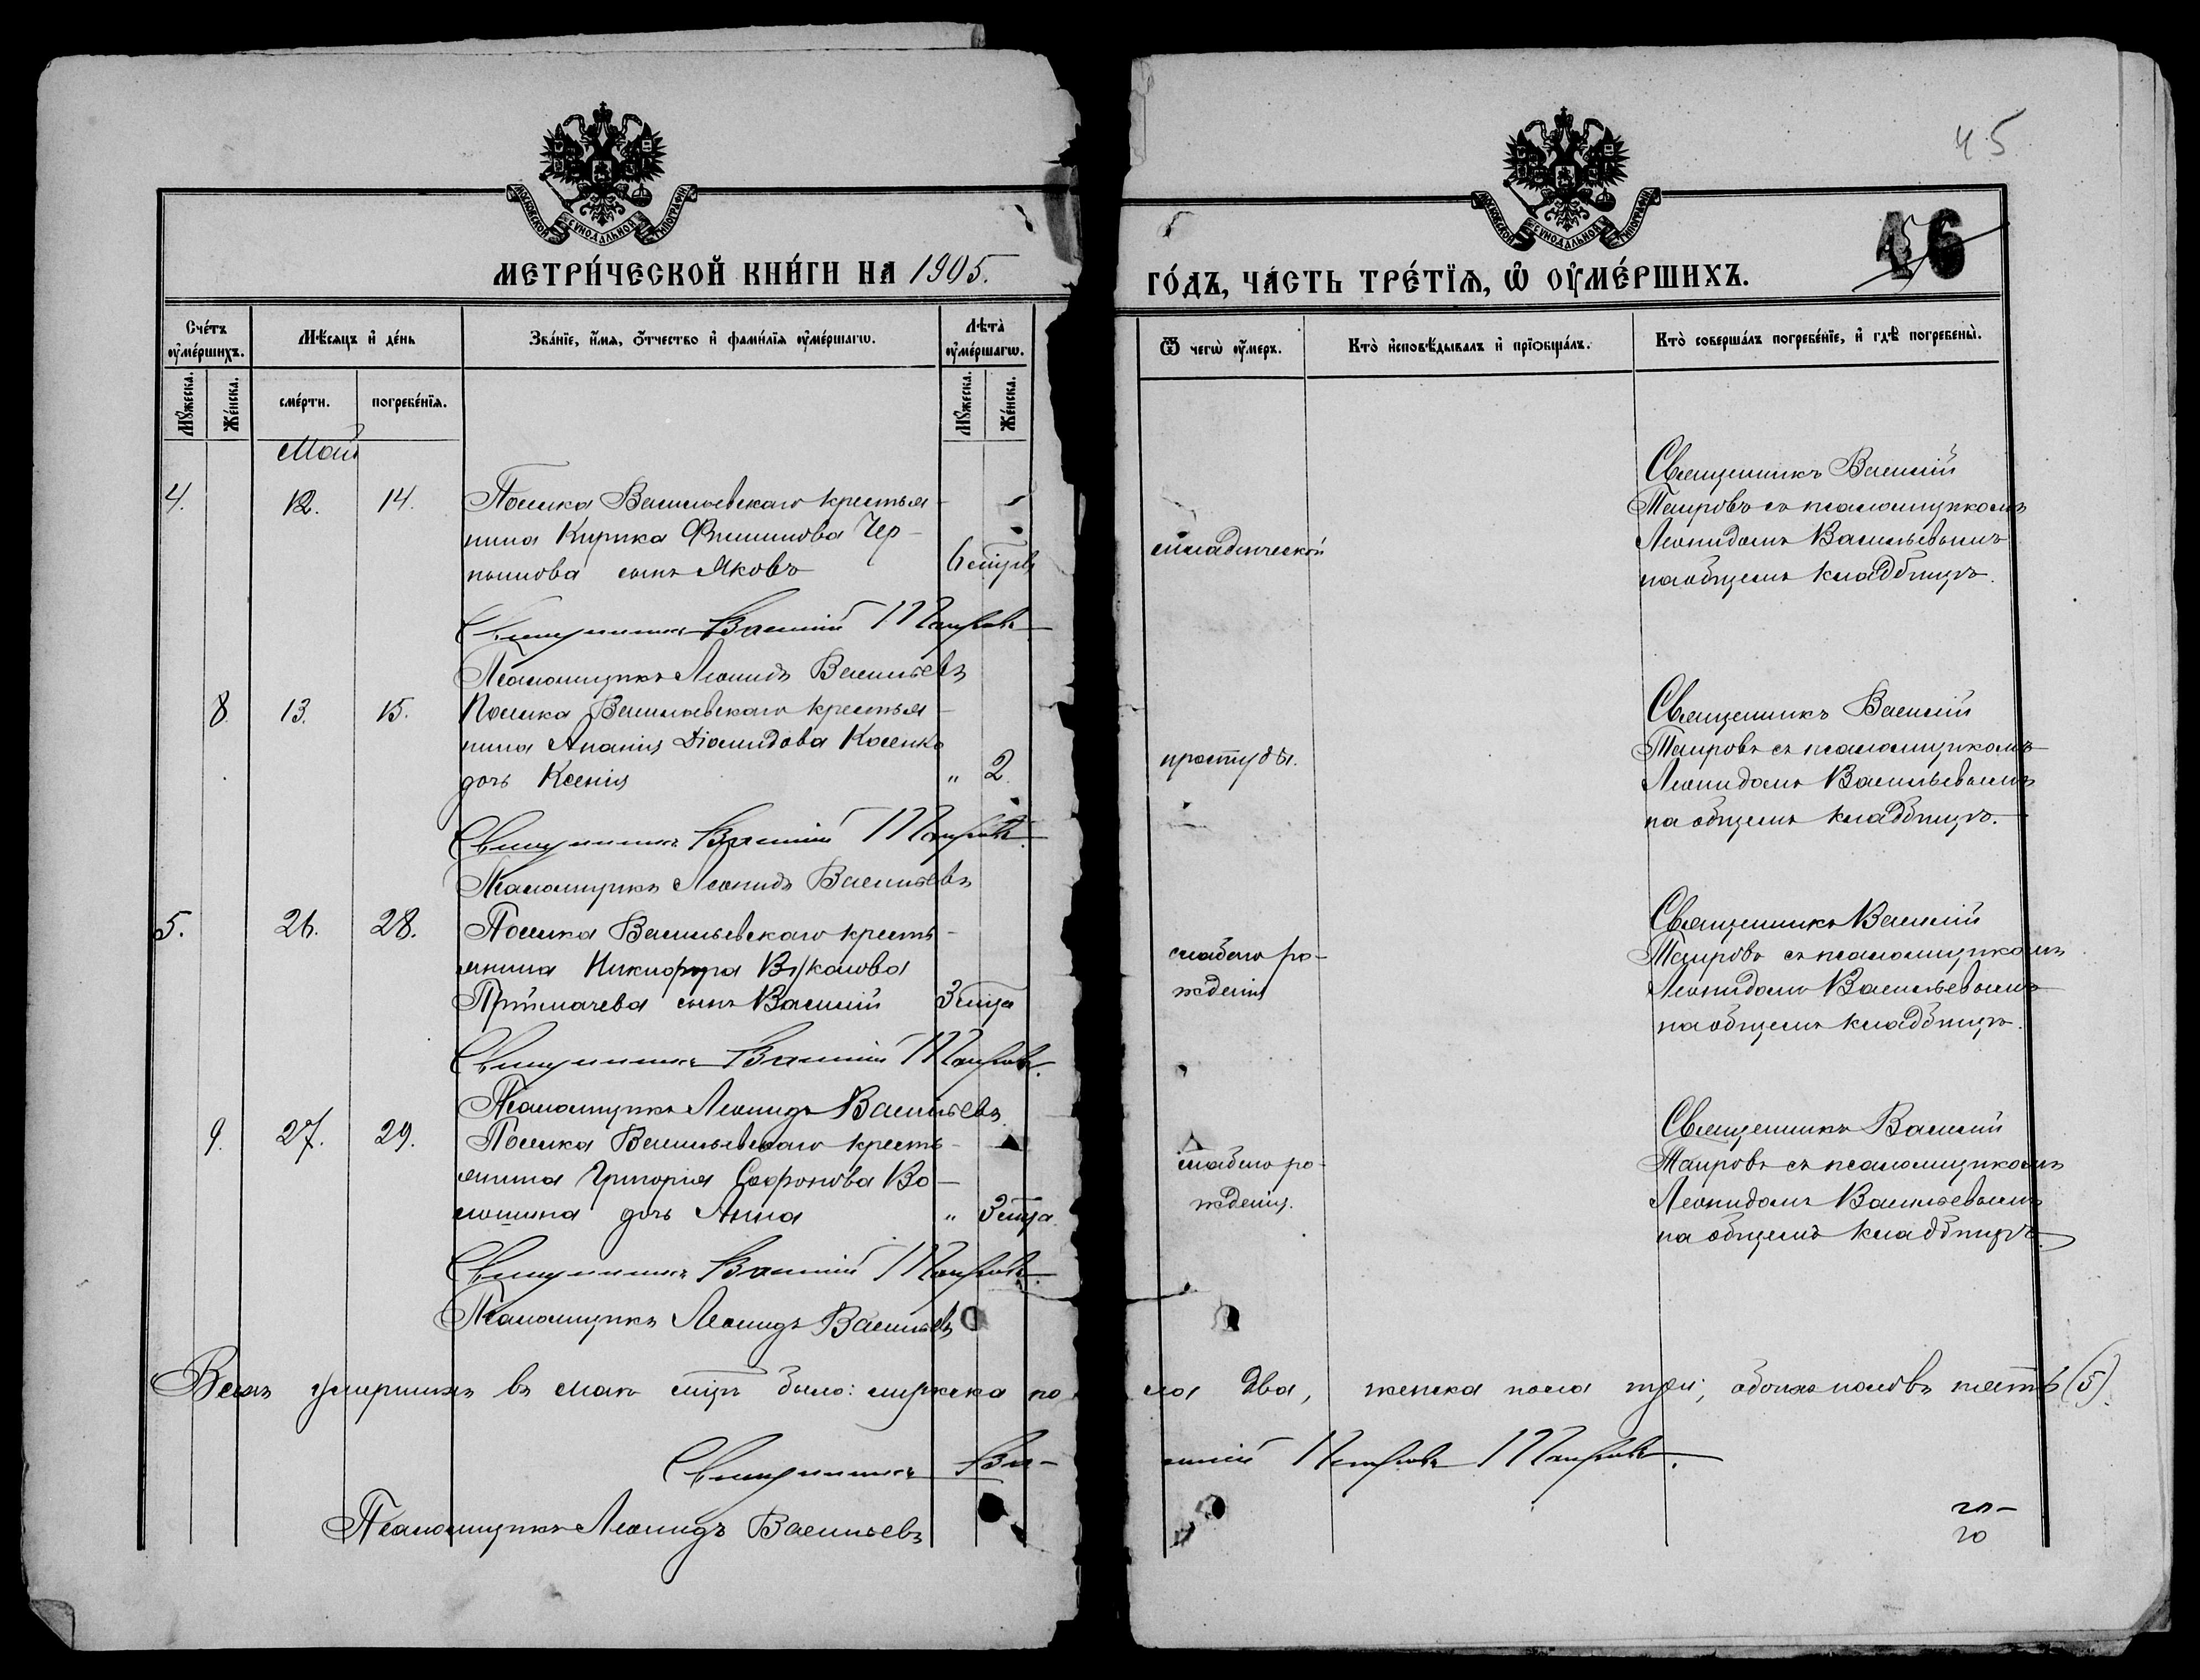 45
46
МОСКОВСКОЙ СѴНОДАЛЬНОЙ ТИПОГРАФІИ
МОСКОВСКОЙ СѴНОДАЛЬНОЙ ТИПОГРАФІИ
МЕТРИ́ЧЕСКОЙ КНИ́ГИ НА 1905.
ГО́ДЪ, ЧА́СТЬ ТРЕ́ТЇѦ, Ѡ҆ ОУ҆МЕ́РШИХЪ.
Сче́тъ оу҆ме́ршихъ.
Мѣ́сяцъ и҆ де́нь
Зва́нїе, и҆́мя, ѻ҆́тчество и҆ фами́лїя оу҆ме́ршагѡ.
Лѣта̀ оу҆ме́ршагѡ.
Ѿ чегѡ̀ оу҆́меръ.
Кто̀ и҆сповѣ́дывалъ и҆ прїѻбща́лъ.
Кто̀ соверша́лъ погребе́нїе, и҆ гдѣ̀ погребены̀.
Мꙋ́жеска.
Же́нска.
сме́рти.
погребе́нїя.
Мꙋ́жеска.
Же́нска.
Май
4.
12.
14.
Поселка Васильевскаго крестья-
нина Кирика Филиппова Чер-
сынъ Яковъ
младенческой
Священникъ Василій
Таировъ съ псаломщикомъ
Леонидомъ Васильевымъ
на общемъ кладбищѣ.
Священникъ Василій Таировъ
Псаломщикъ Леонидъ Васильевъ
8.
13.
15.
Поселка Васильевскаго крестья-
нина Ананія Діомидова Косенко
дочь Ксенія
" 2.
простуды.
Священникъ Василій
Таировъ съ псаломщикомъ
Леонидомъ Васильевымъ
на общемъ кладбищѣ.
Священникъ Василій Таировъ.
Псаломщикъ Леонидъ Васильевъ
5.
26.
28.
Поселка Васильевскаго кресть-
янина Никифора Вуколова
сынъ Василій
3 мѣца
слабаго ро-
жденія
Священникъ Василій
Таировъ съ псаломщикомъ
Леонидомъ Васильевымъ
на общемъ кладбищѣ.
Священникъ Василій Таировъ.
Псаломщикъ Леонидъ Васильевъ.
9.
27.
29.
Поселка Васильевскаго кресть-
янина Григорія Софронова Во-
лошина дочь Анна
" 3 мѣца.
слабаго ро-
жденія.
Священникъ Василій
Таировъ съ псаломщикомъ
Леонидомъ Васильевымъ
на общемъ кладбищѣ.
Священникъ Василій Таировъ.
Псаломщикъ Леонидъ Васильевъ
Всѣхъ умершихъ въ маѣ мѣцѣ было: мужска по
ла два, женска пола три, обоихъ половъ пять (5).
Священникъ Ва-
силій Петровъ Таировъ.
Псаломщикъ Леонидъ Васильевъ